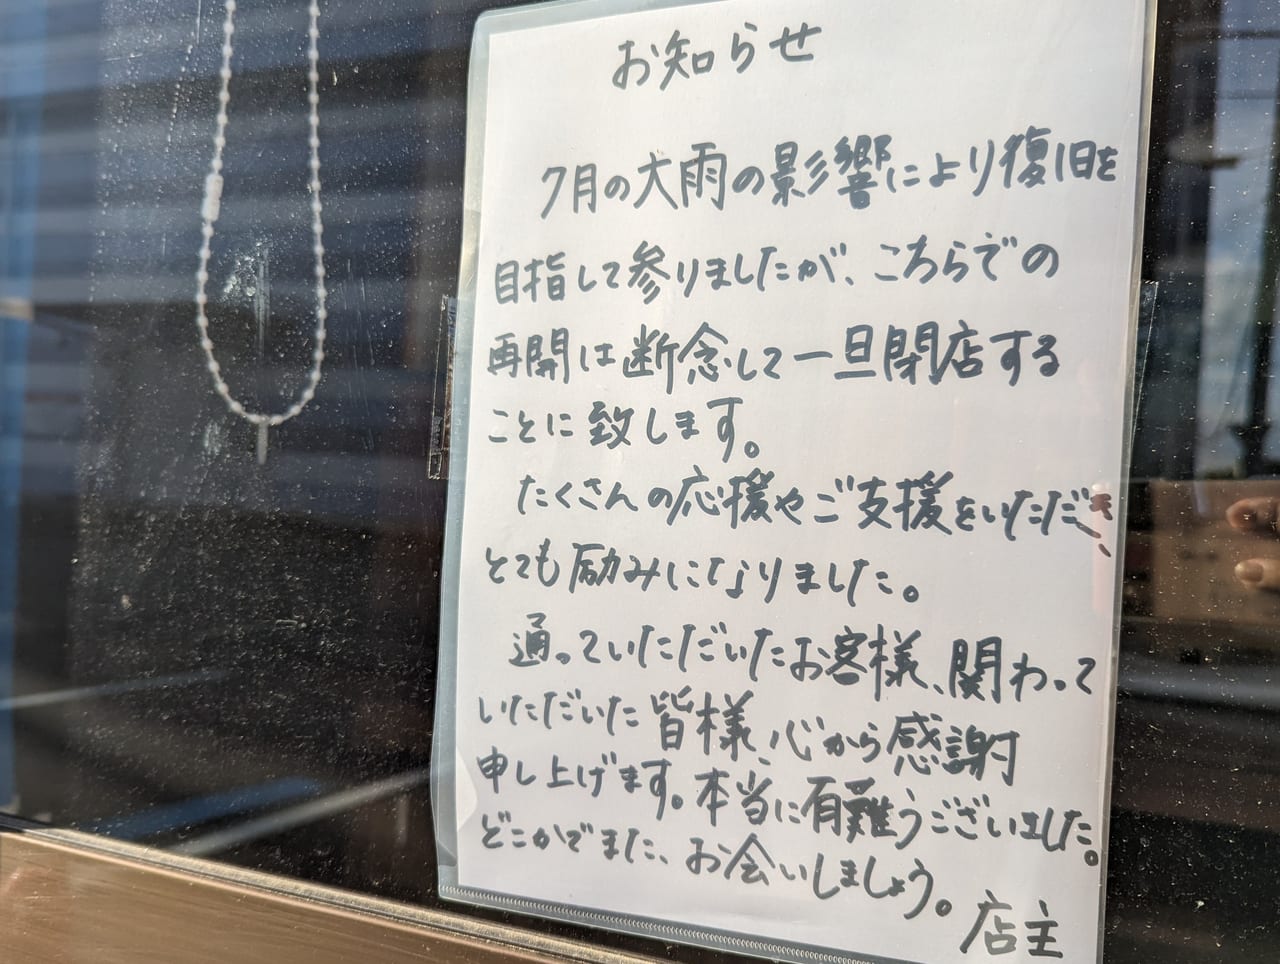 お知らせ
7月の大雨の影響により復旧を
目指して参りましたが、こちらでの
再開は断念して一旦閉店する
ことに致します。
たくさんの応援やご支援をいただき、
とても励みになりました。
通っていただいたお客様、関わって
いただいた皆様、心から感謝
申し上げます。本当に有難うございました。
どこかでまた、お会いしましょう。
店主